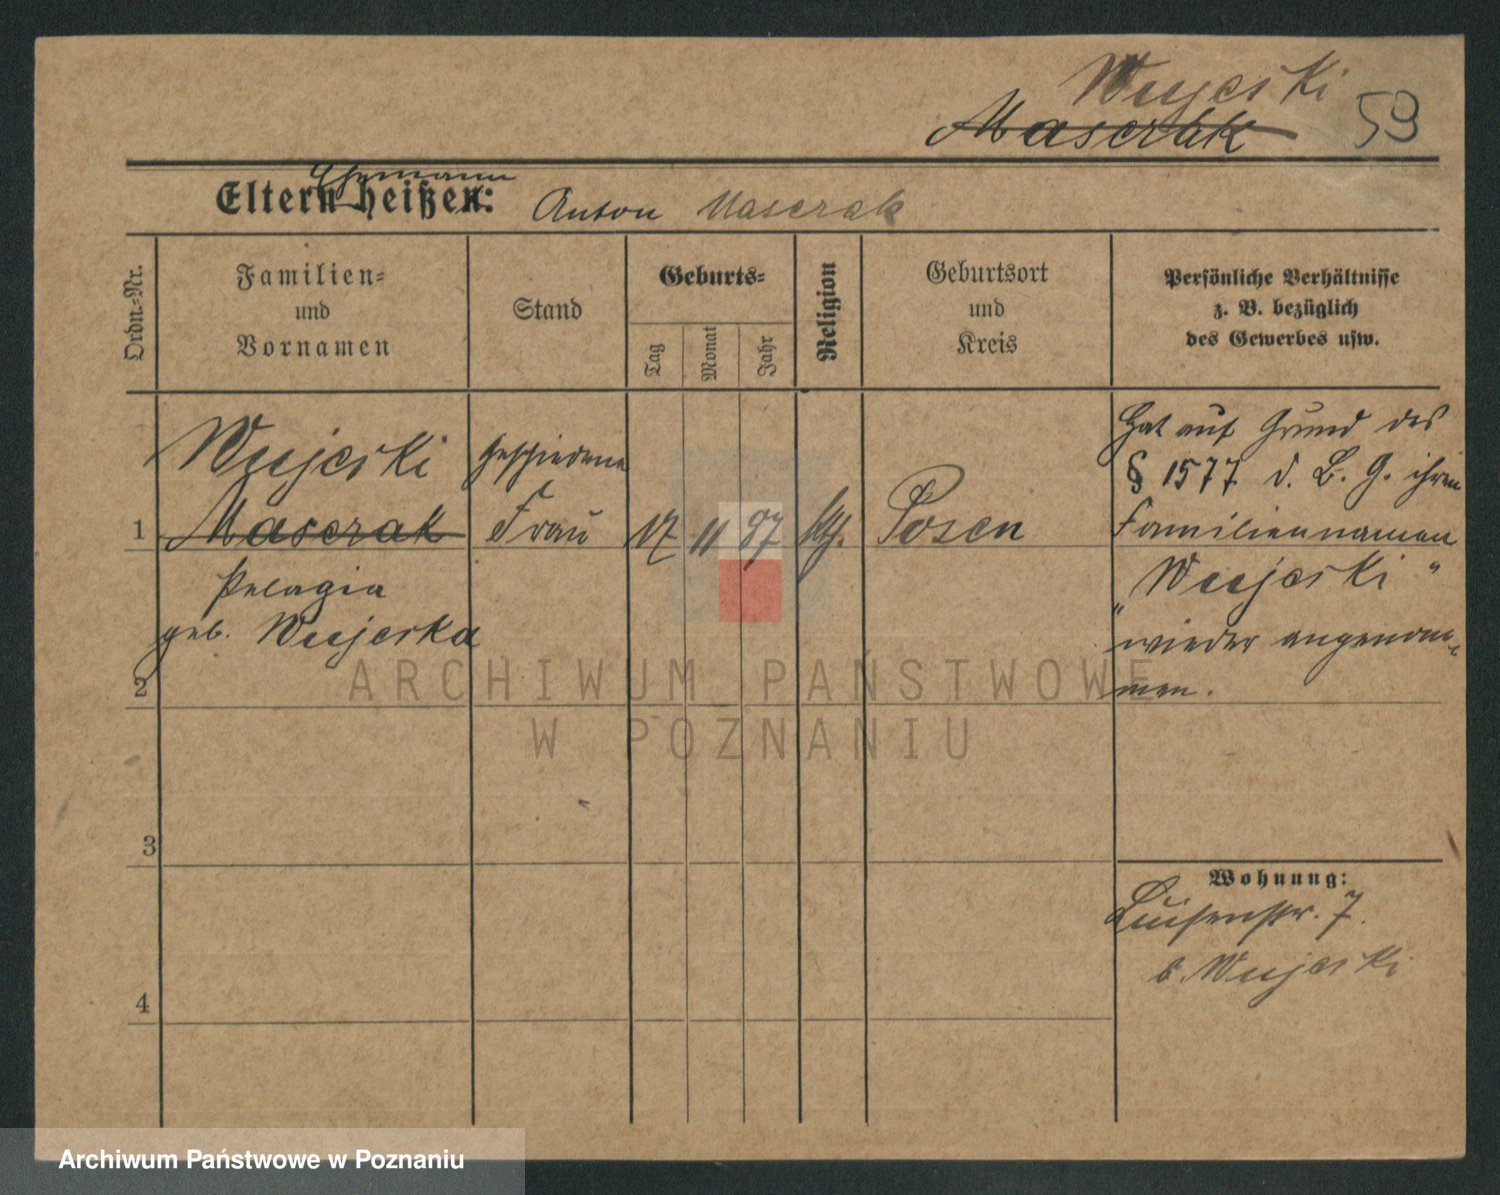 Wujeski
Mascrak 59
Ehemann
Eltern heißen: Anton Mascrak
Ordn.-Nr.
Familien-
und
Vornamen
Stand
Geburts-
Tag
Monat
Jahr
Religion
Geburtsort
und
Kreis
Persönliche Verhältnisse
z. B. bezüglich
des Gewerbes usw.
Wujeski
1 Mascrak
Pelagia
geb. Wujeska
geschiedene
Frau
17 11 87 kth. Posen
Hat auf Grund des
§ 1577 d. B. G. ihren
Familiennamen
„Wujeski“
wieder angenom-
men.
2
3
4
Wohnung:
Luisenstr. 7.
b. Wujeski
ARCHIWUM PAŃSTWOWE
W POZNANIU
Archiwum Państwowe w Poznaniu